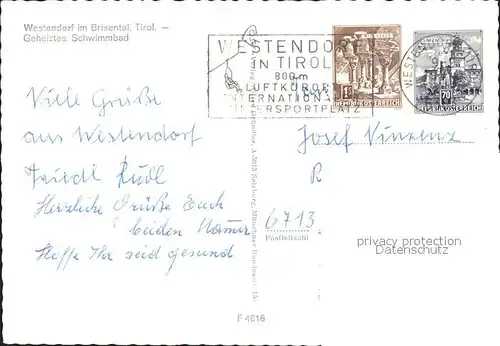 Westendorf im Brixental, Tirol. —
Geheiztes Schwimmbad
WESTENDORF
IN TIROL
800m
LUFTKURORT
INTERNATIONALER
WINTERSPORTPLATZ
REPUBLIK ÖSTERREICH
70
REPUBLIK ÖSTERREICH
Viele Grüße
aus Westendorf
Friedl Rudl
Herzliche Grüße Euch
beiden
Hoffe Ihr seid gesund
Josef Vinzenz
R
6713
Postleitzahl
privacy protection
Datenschutz
F 4616